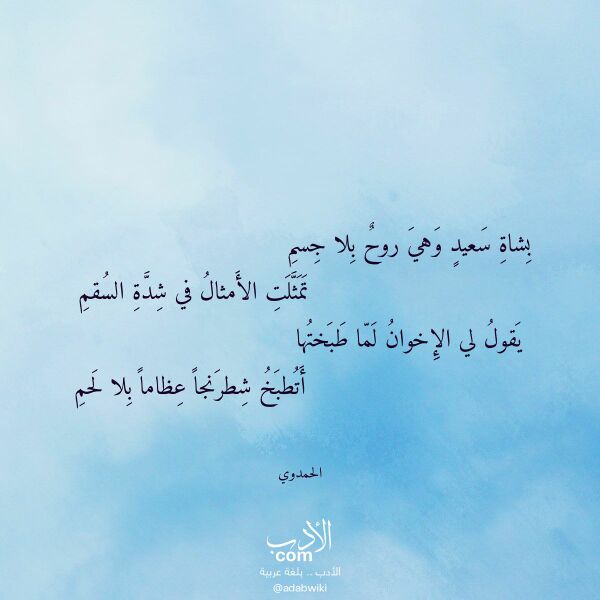 بِشاةِ سَعيدٍ وَهيَ روحٌ بِلا جِسمِ
تَمَثَّلَتِ الأَمثالُ في شِدَّةِ السُقمِ
يَقولُ لي الإِخوانُ لَمّا طَبَختُها
أَتُطبَخُ شِطرَنجاً عِظاماً بِلا لَحمِ
الحمدوي
الأدب
com
الأدب .. بلغة عربية
@adabwiki